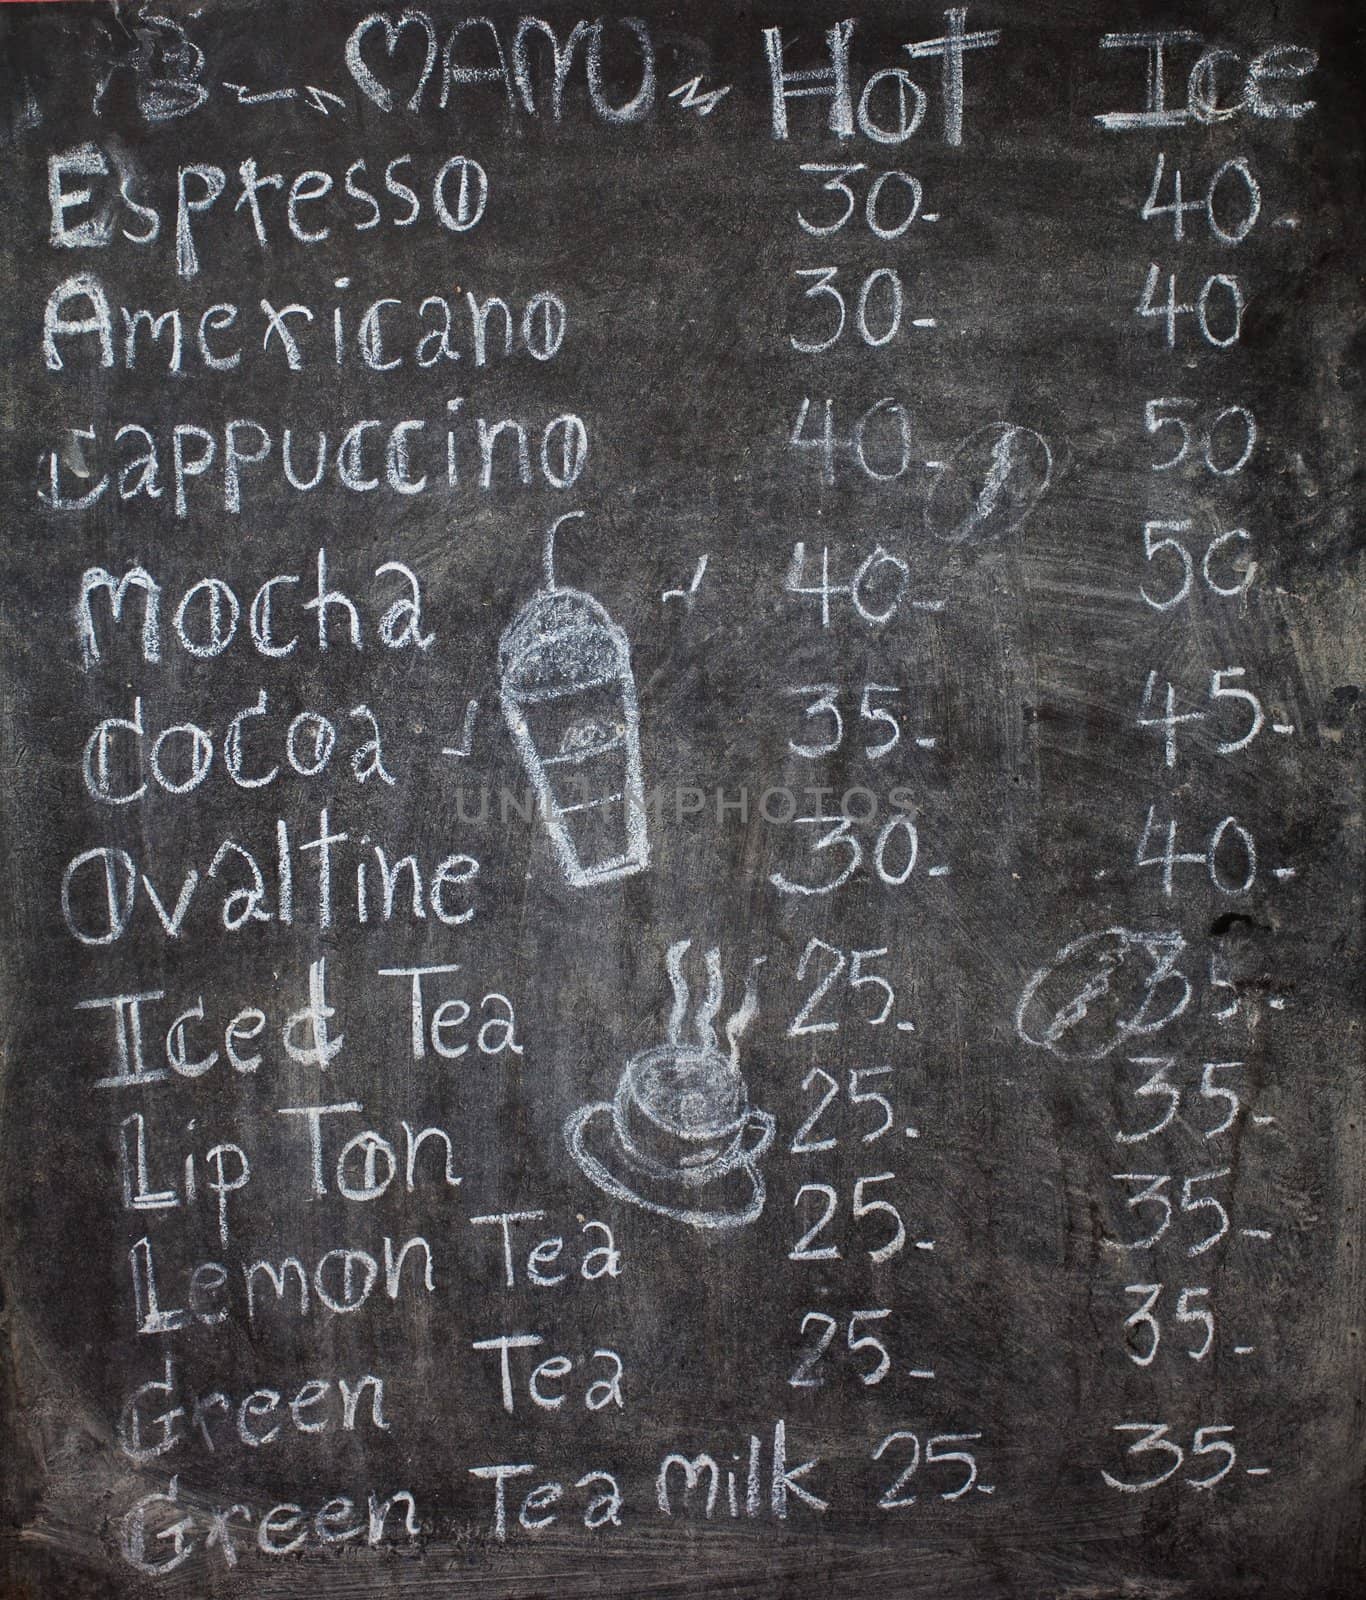 MANU Hot Ice
Espresso 30.- 40.-
Americano 30.- 40
Cappuccino 40.- 50
Mocha 40.- 50
cocoa 35.- 45.-
Ovaltine 30.- 40.-
Iced Tea 25.- 35.-
Lip Ton 25.- 35.-
Lemon Tea 25.- 35.-
Green Tea 25.- 35.-
Green Tea milk 25.- 35.-
UNLIMPHOTOS